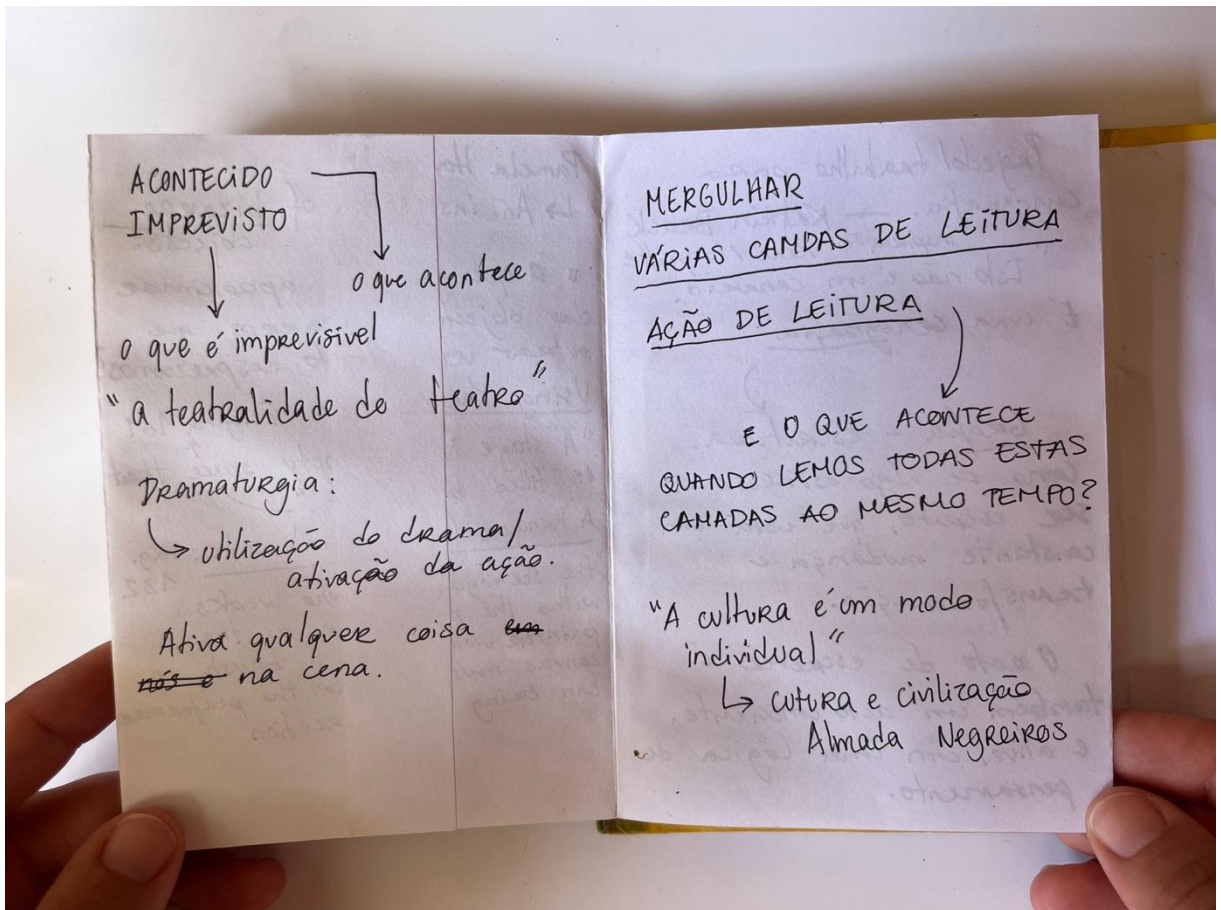 ACONTECIDO
IMPREVISTO
o que acontece
o que é imprevisivel
"a teatralidade do teatro"
Dramaturgia:
↳ utilização do drama/
ativação da ação.
Ativa qualquer coisa em
nós e na cena.
MERGULHAR
VÁRIAS CAMDAS DE LEITURA
AÇÃO DE LEITURA
E O QUE ACONTECE
QUANDO LEMOS TODAS ESTAS
CAMADAS AO MESMO TEMPO?
"A cultura é um modo
individual"
↳ cutura e civilização
Almada Negreiros